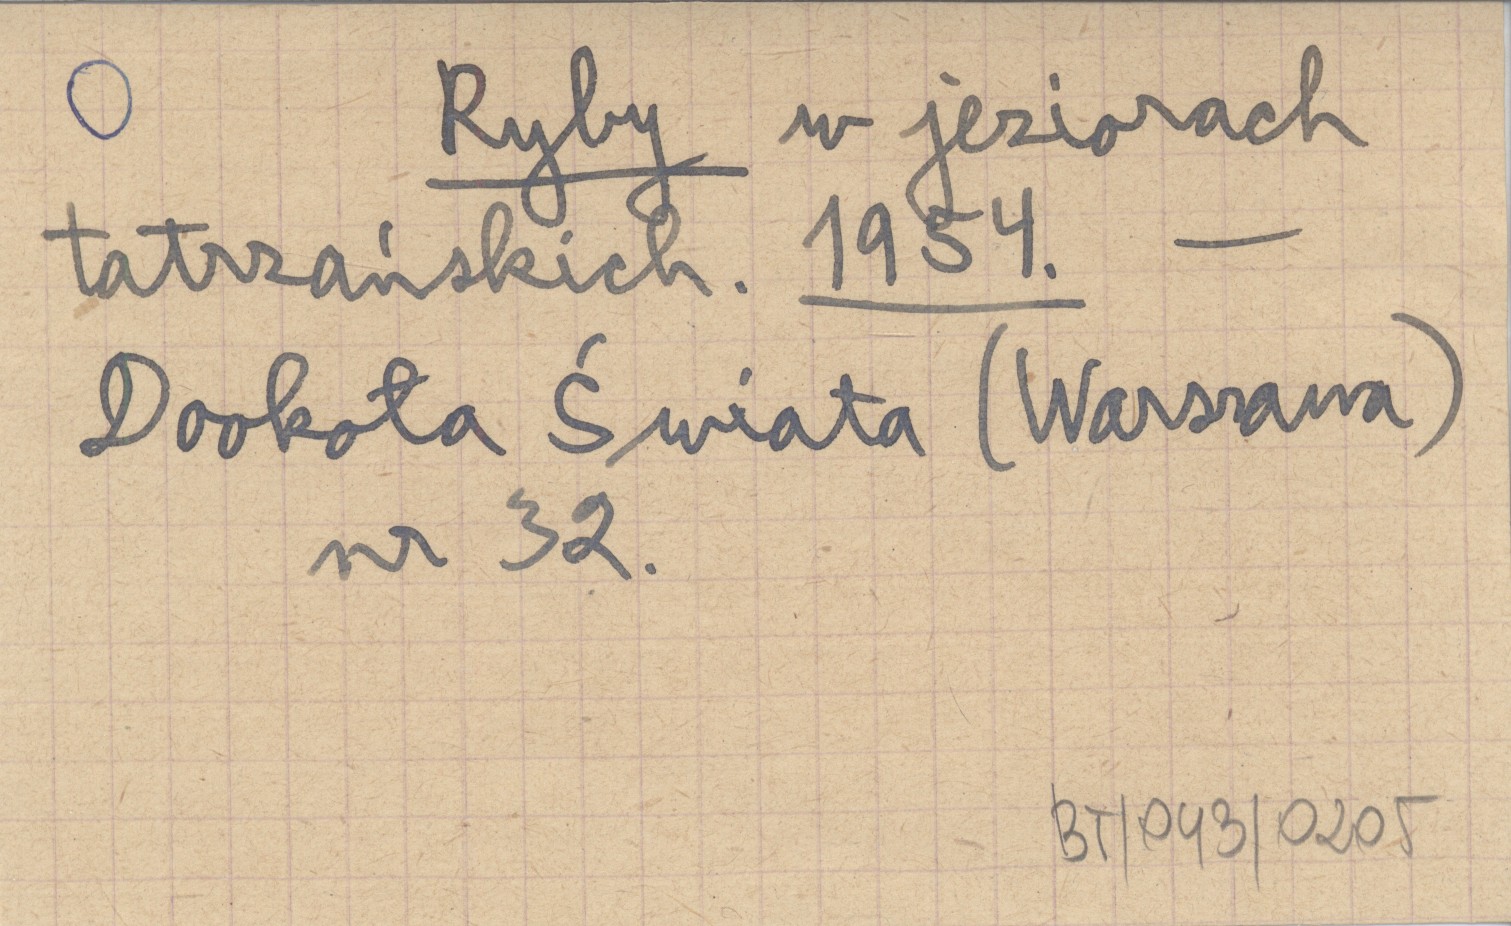 Ryby w jeziorach
tatrzańskich. 1954. —
Dookoła Świata (Warszawa)
nr 32.
BT/043/0205